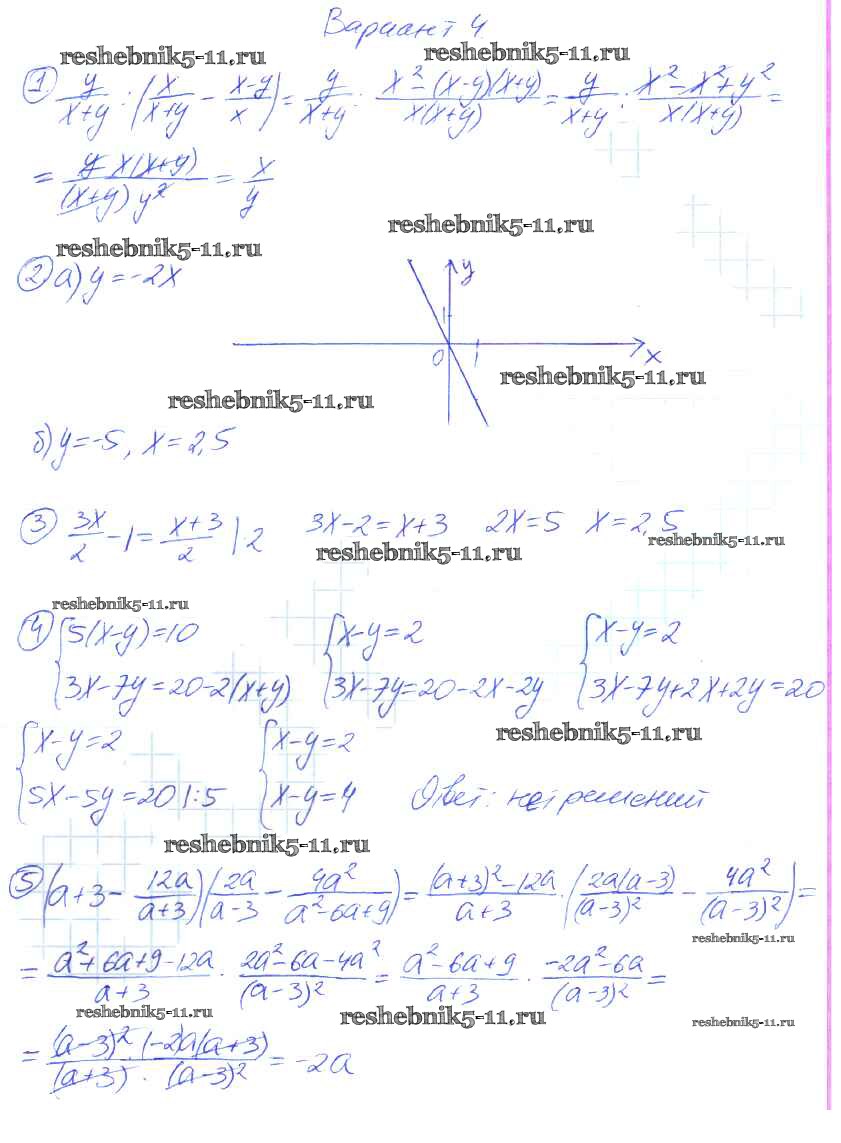 Вариант 4
reshebnik5-11.ru reshebnik5-11.ru
① y/(x+y) : (x/(x+y) - (x-y)/x) = y/(x+y) : (x²-(x-y)(x+y))/(x(x+y)) = y/(x+y) : (x²-x²+y²)/(x(x+y)) =
= (y·x(x+y))/((x+y)y²) = x/y
reshebnik5-11.ru
reshebnik5-11.ru
② а) y=-2x
y
1
0 1 x
reshebnik5-11.ru
reshebnik5-11.ru
б) y=-5, x=2,5
③ 3x/2 - 1 = (x+3)/2 |2 3x-2=x+3 2x=5 x=2,5
reshebnik5-11.ru reshebnik5-11.ru
reshebnik5-11.ru
④ { 5(x-y)=10 { x-y=2 { x-y=2
3x-7y=20-2(x+y) 3x-7y=20-2x-2y 3x-7y+2x+2y=20
reshebnik5-11.ru
{ x-y=2 { x-y=2
5x-5y=20 |:5 x-y=4 Ответ: нет решений
reshebnik5-11.ru
⑤ (a+3 - 12a/(a+3))(2a/(a-3) - 4a²/(a²-6a+9)) = ((a+3)²-12a)/(a+3) · (2a(a-3)/(a-3)² - 4a²/(a-3)²) =
reshebnik5-11.ru
= (a²+6a+9-12a)/(a+3) · (2a²-6a-4a²)/(a-3)² = (a²-6a+9)/(a+3) · (-2a²-6a)/(a-3)² =
reshebnik5-11.ru reshebnik5-11.ru reshebnik5-11.ru
= ((a-3)²·(-2)a(a+3))/((a+3)·(a-3)²) = -2a